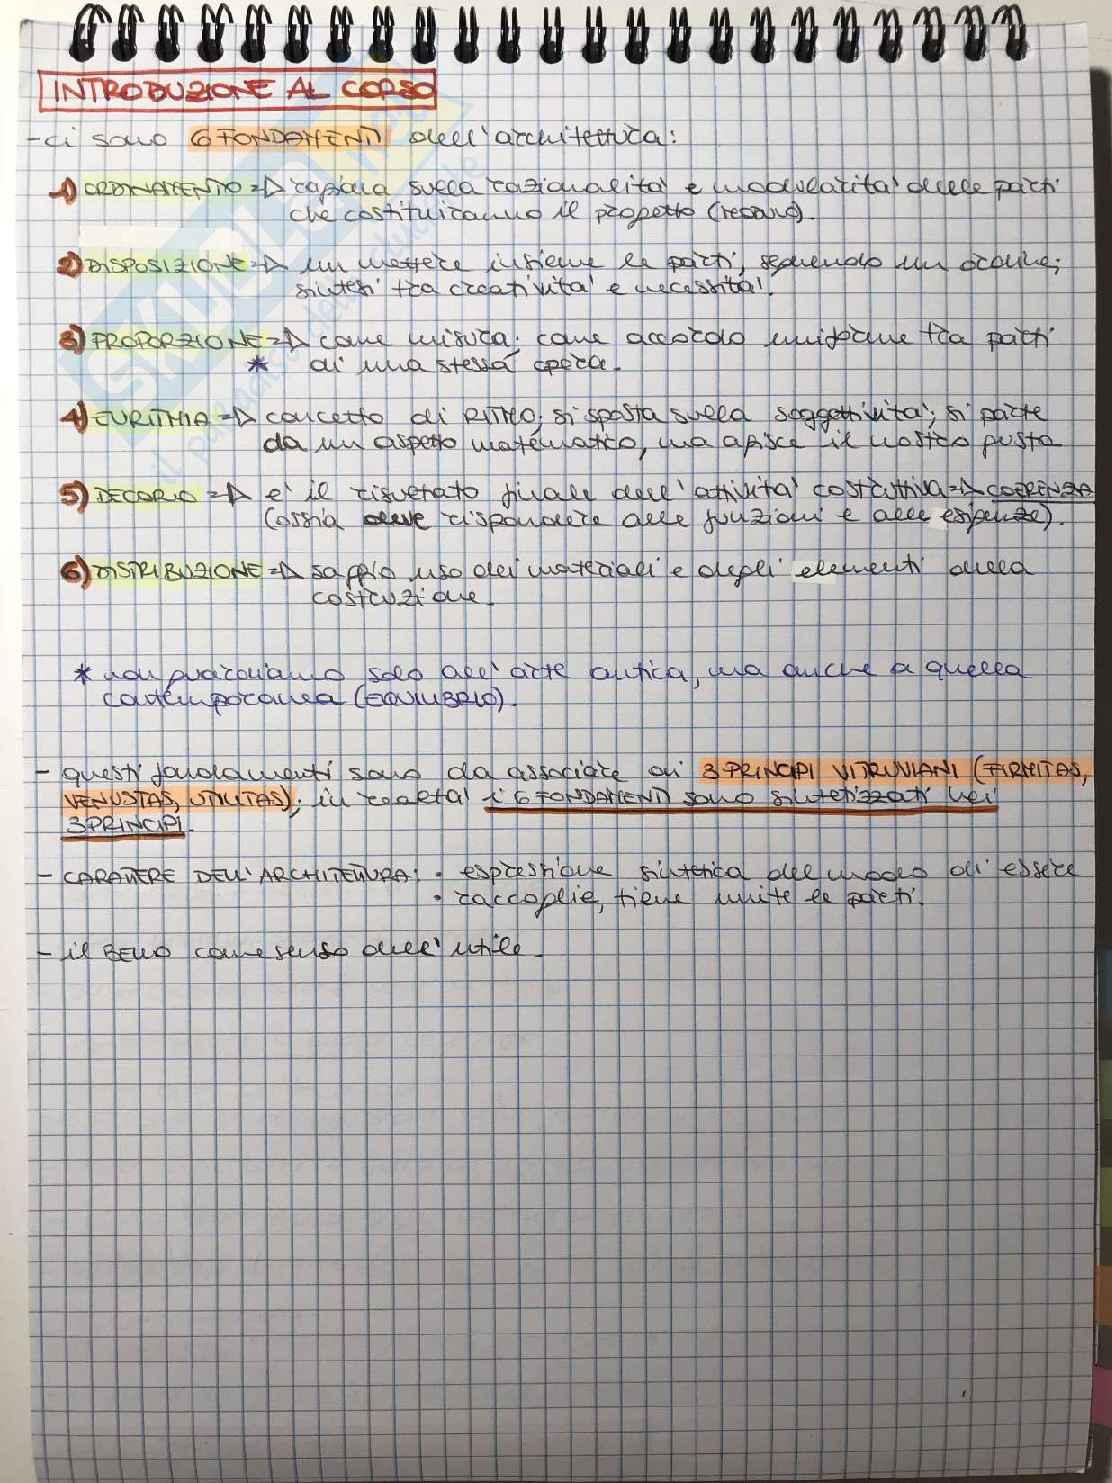 INTRODUZIONE AL CORSO
- ci sono 6 FONDAMENTI dell'architettura:
1) ORDINAMENTO => ragiona sulla razionalità e modularità delle parti
che costituiranno il progetto
2) DISPOSIZIONE => un mettere insieme le parti, seguendo un ordine;
sintesi tra creatività e necessità.
3) PROPORZIONE => come misura; come accordo uniforme tra parti
* di una stessa opera.
4) EURITHIA => concetto di RITMO; si sposta sulla soggettività; si parte
da un aspetto matematico, ma agisce il nostro gusto
5) DECORO => è il risultato finale dell'attività costruttiva => COERENZA
(ossia deve rispondere alle funzioni e alle esigenze).
6) DISTRIBUZIONE => saggio uso dei materiali e degli elementi della
costruzione.
* non guardiamo solo all'arte antica, ma anche a quella
contemporanea (EQUILIBRIO).
- questi fondamenti sono da associare ai 3 PRINCIPI VITRUVIANI (FIRMITAS,
VENUSTAS, UTILITAS); in realtà i 6 FONDAMENTI sono sintetizzati nei
3 PRINCIPI.
- CARATTERE DELL'ARCHITETTURA: • espressione sintetica del modo di essere
• raccoglie, tiene unite le parti.
- il BELLO come senso dell'utile.